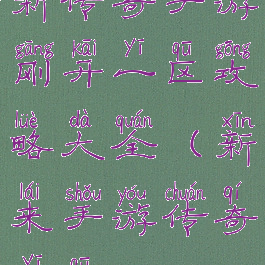 新传奇手游
gāng kāi yī qū gōng
刚开一区攻
lüè dà quán xīn
略大全（新
lái shǒu yóu chuán qí
来手游传奇
yī qū